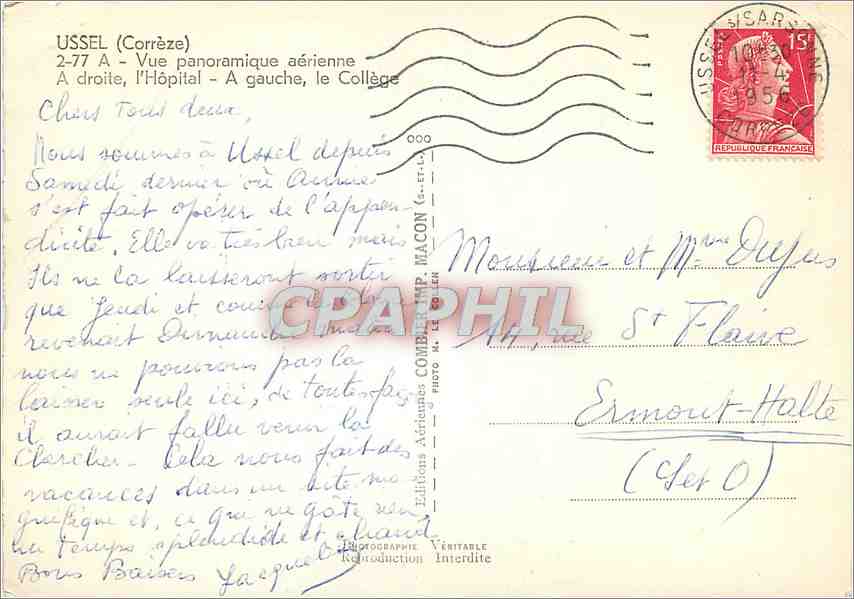 USSEL (Corrèze)
2-77 A - Vue panoramique aérienne
A droite, l'Hôpital - A gauche, le Collège
Chers Tous deux,
Nous sommes à Ussel depuis
Samedi dernier où Annie
s'est fait opérer de l'appen-
dicite. Elle va très bien mais
Ils ne la laisseront sortir
que Jeudi et comme
revenait Dimanche
nous ne pouvions pas la
laisser seule ici, de toutes façons
il aurait fallu venir la
chercher - Cela nous fait des
vacances dans un site ma-
gnifique et, ce qui ne gâte rien,
un temps splendide et chaud
Bons Baisers Jacqueline
000
Editions Aériennes COMBIER IMP. MACON (S.-ET-L.)
PHOTO M. LE COLLEN
PHOTOGRAPHIE VÉRITABLE
Reproduction Interdite
USSEL S/SARSONNE
1956
CORRÈZE
15F
REPUBLIQUE FRANÇAISE
Monsieur et Mme Dufus
14, rue St Flaive
Ermont-Halte
(S et O)
CPAPHIL